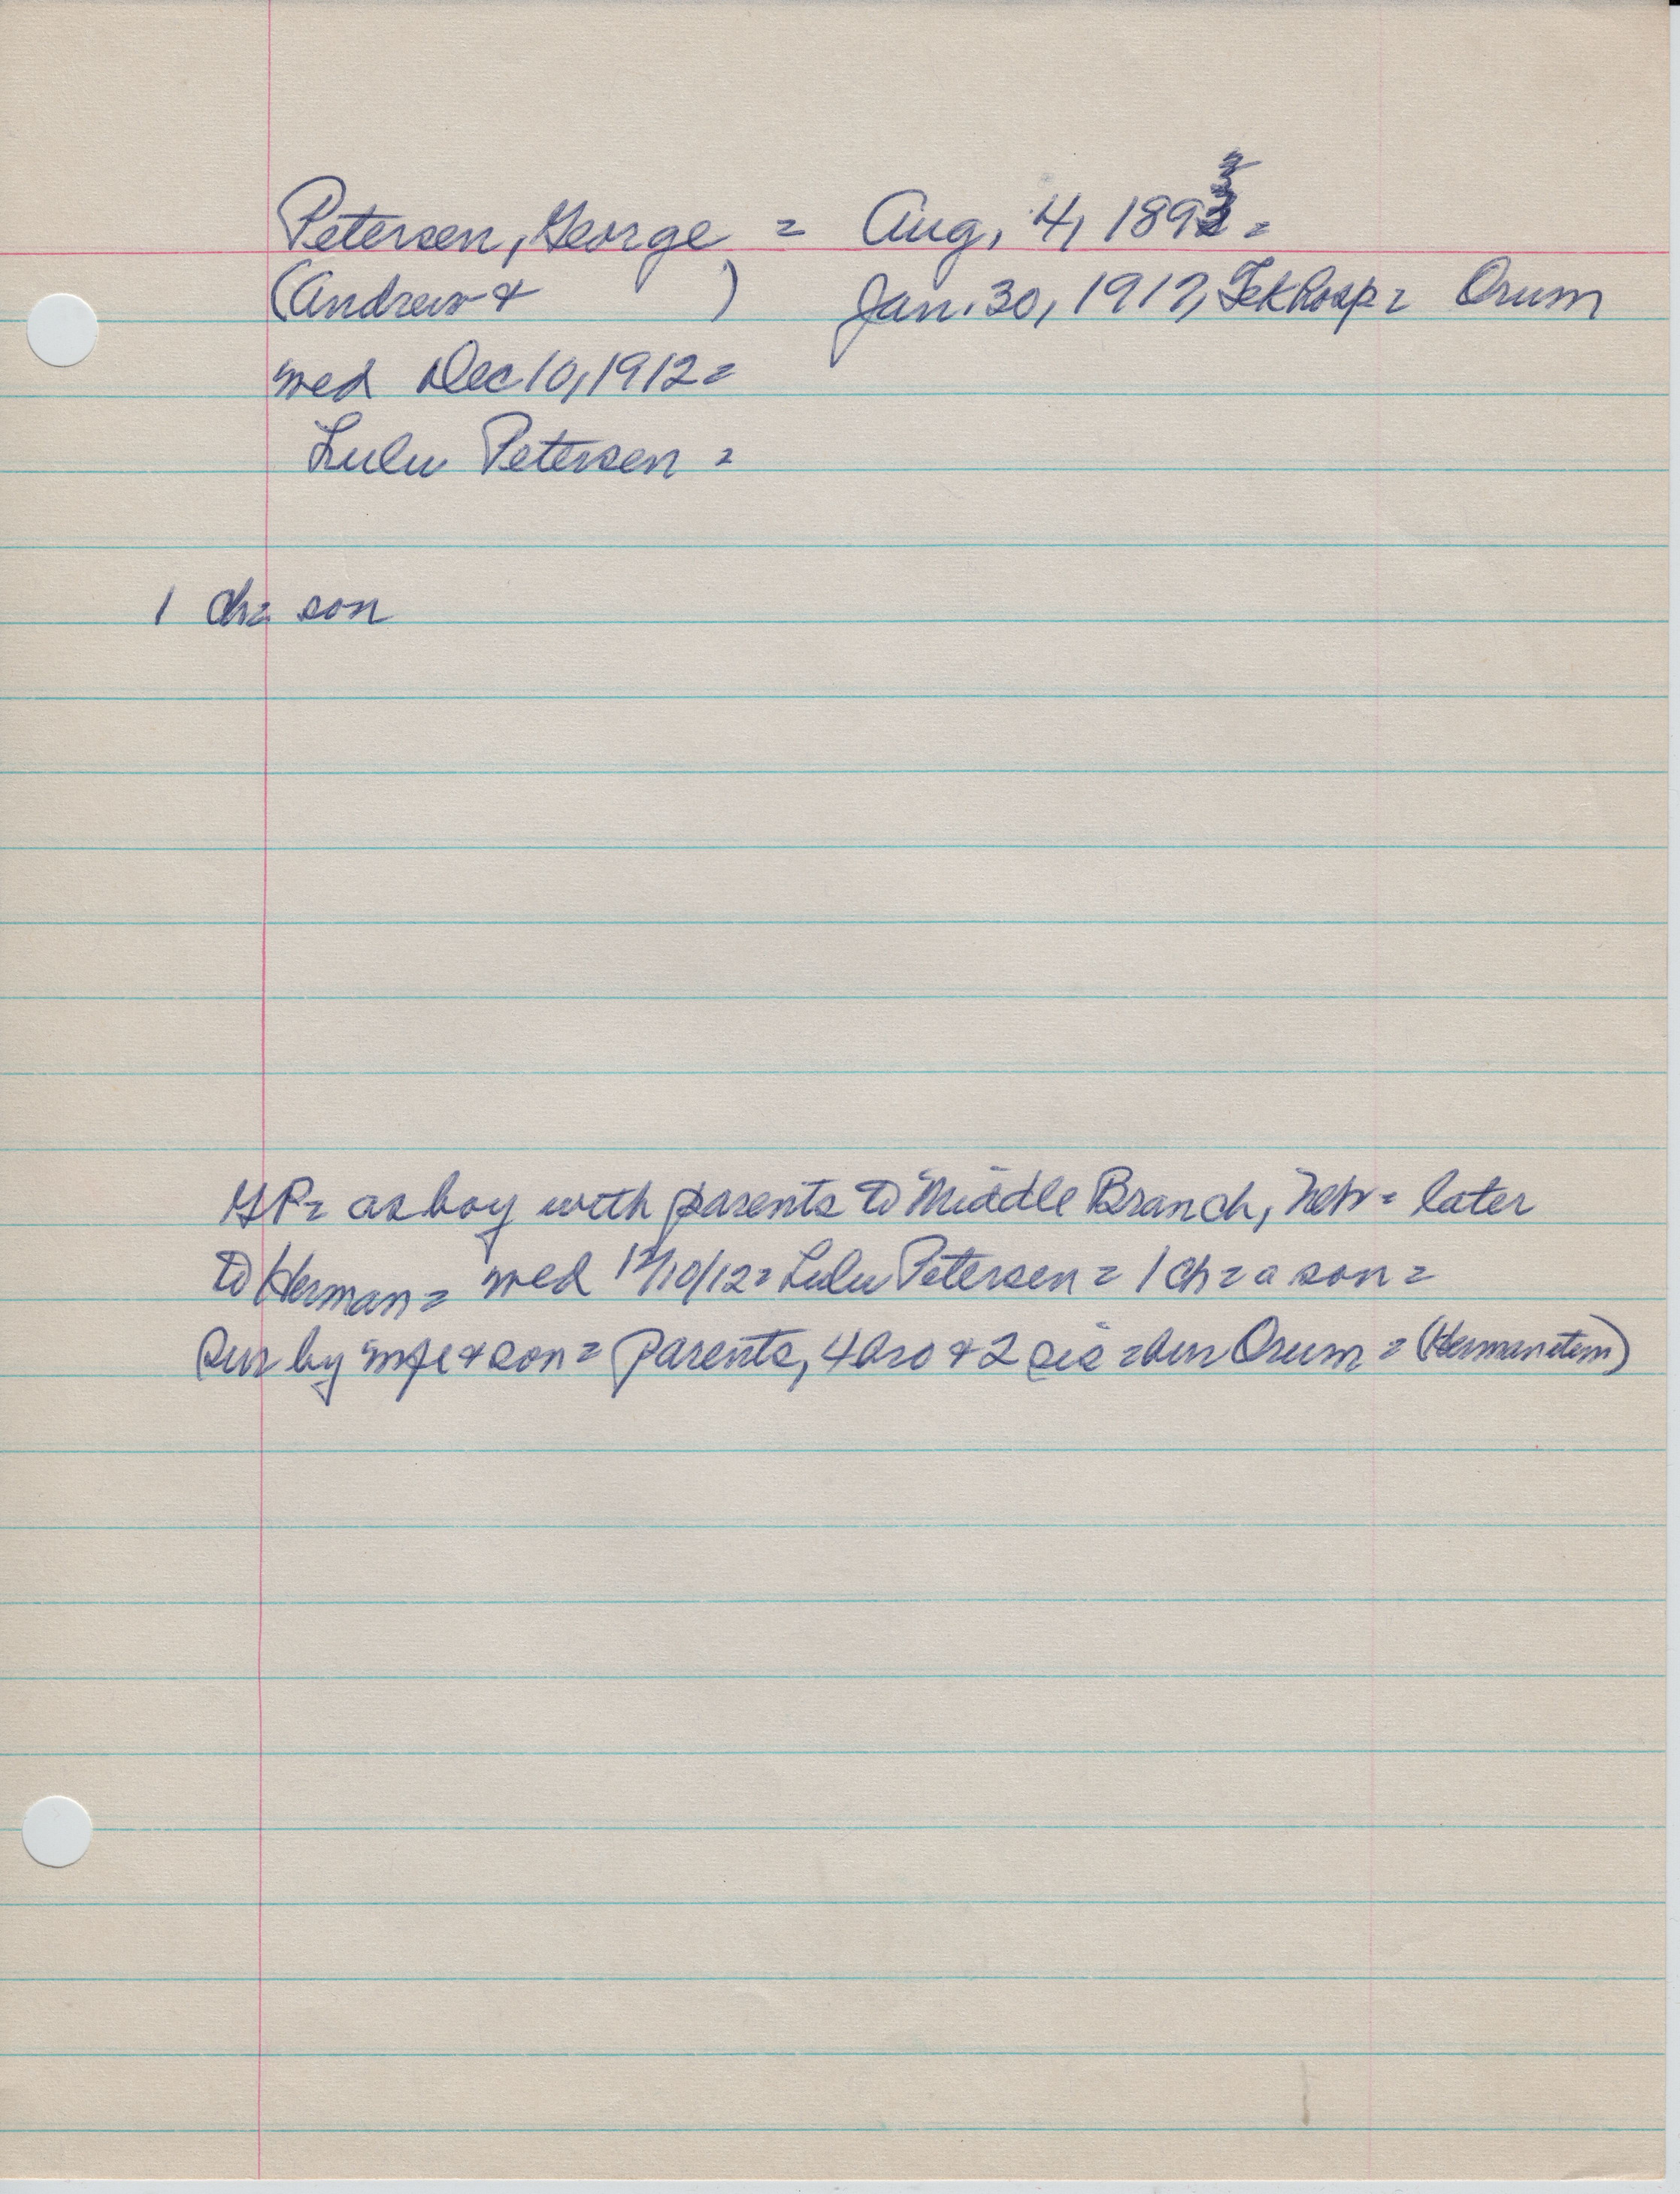 Petersen, George = Aug, 4, 1893 =
(Andrew & ) Jan. 30, 1917, Tek hosp = Orum
wed Dec 10, 1912 =
Lulu Petersen =
1 ch = son
GP = as boy with parents to Middle Branch, Neb = later
to Herman = wed 12/10/12 = Lulu Petersen = 1 ch = a son =
Sur by wife & son = parents, 4 bro & 2 sis = bur Orum = (Herman item)